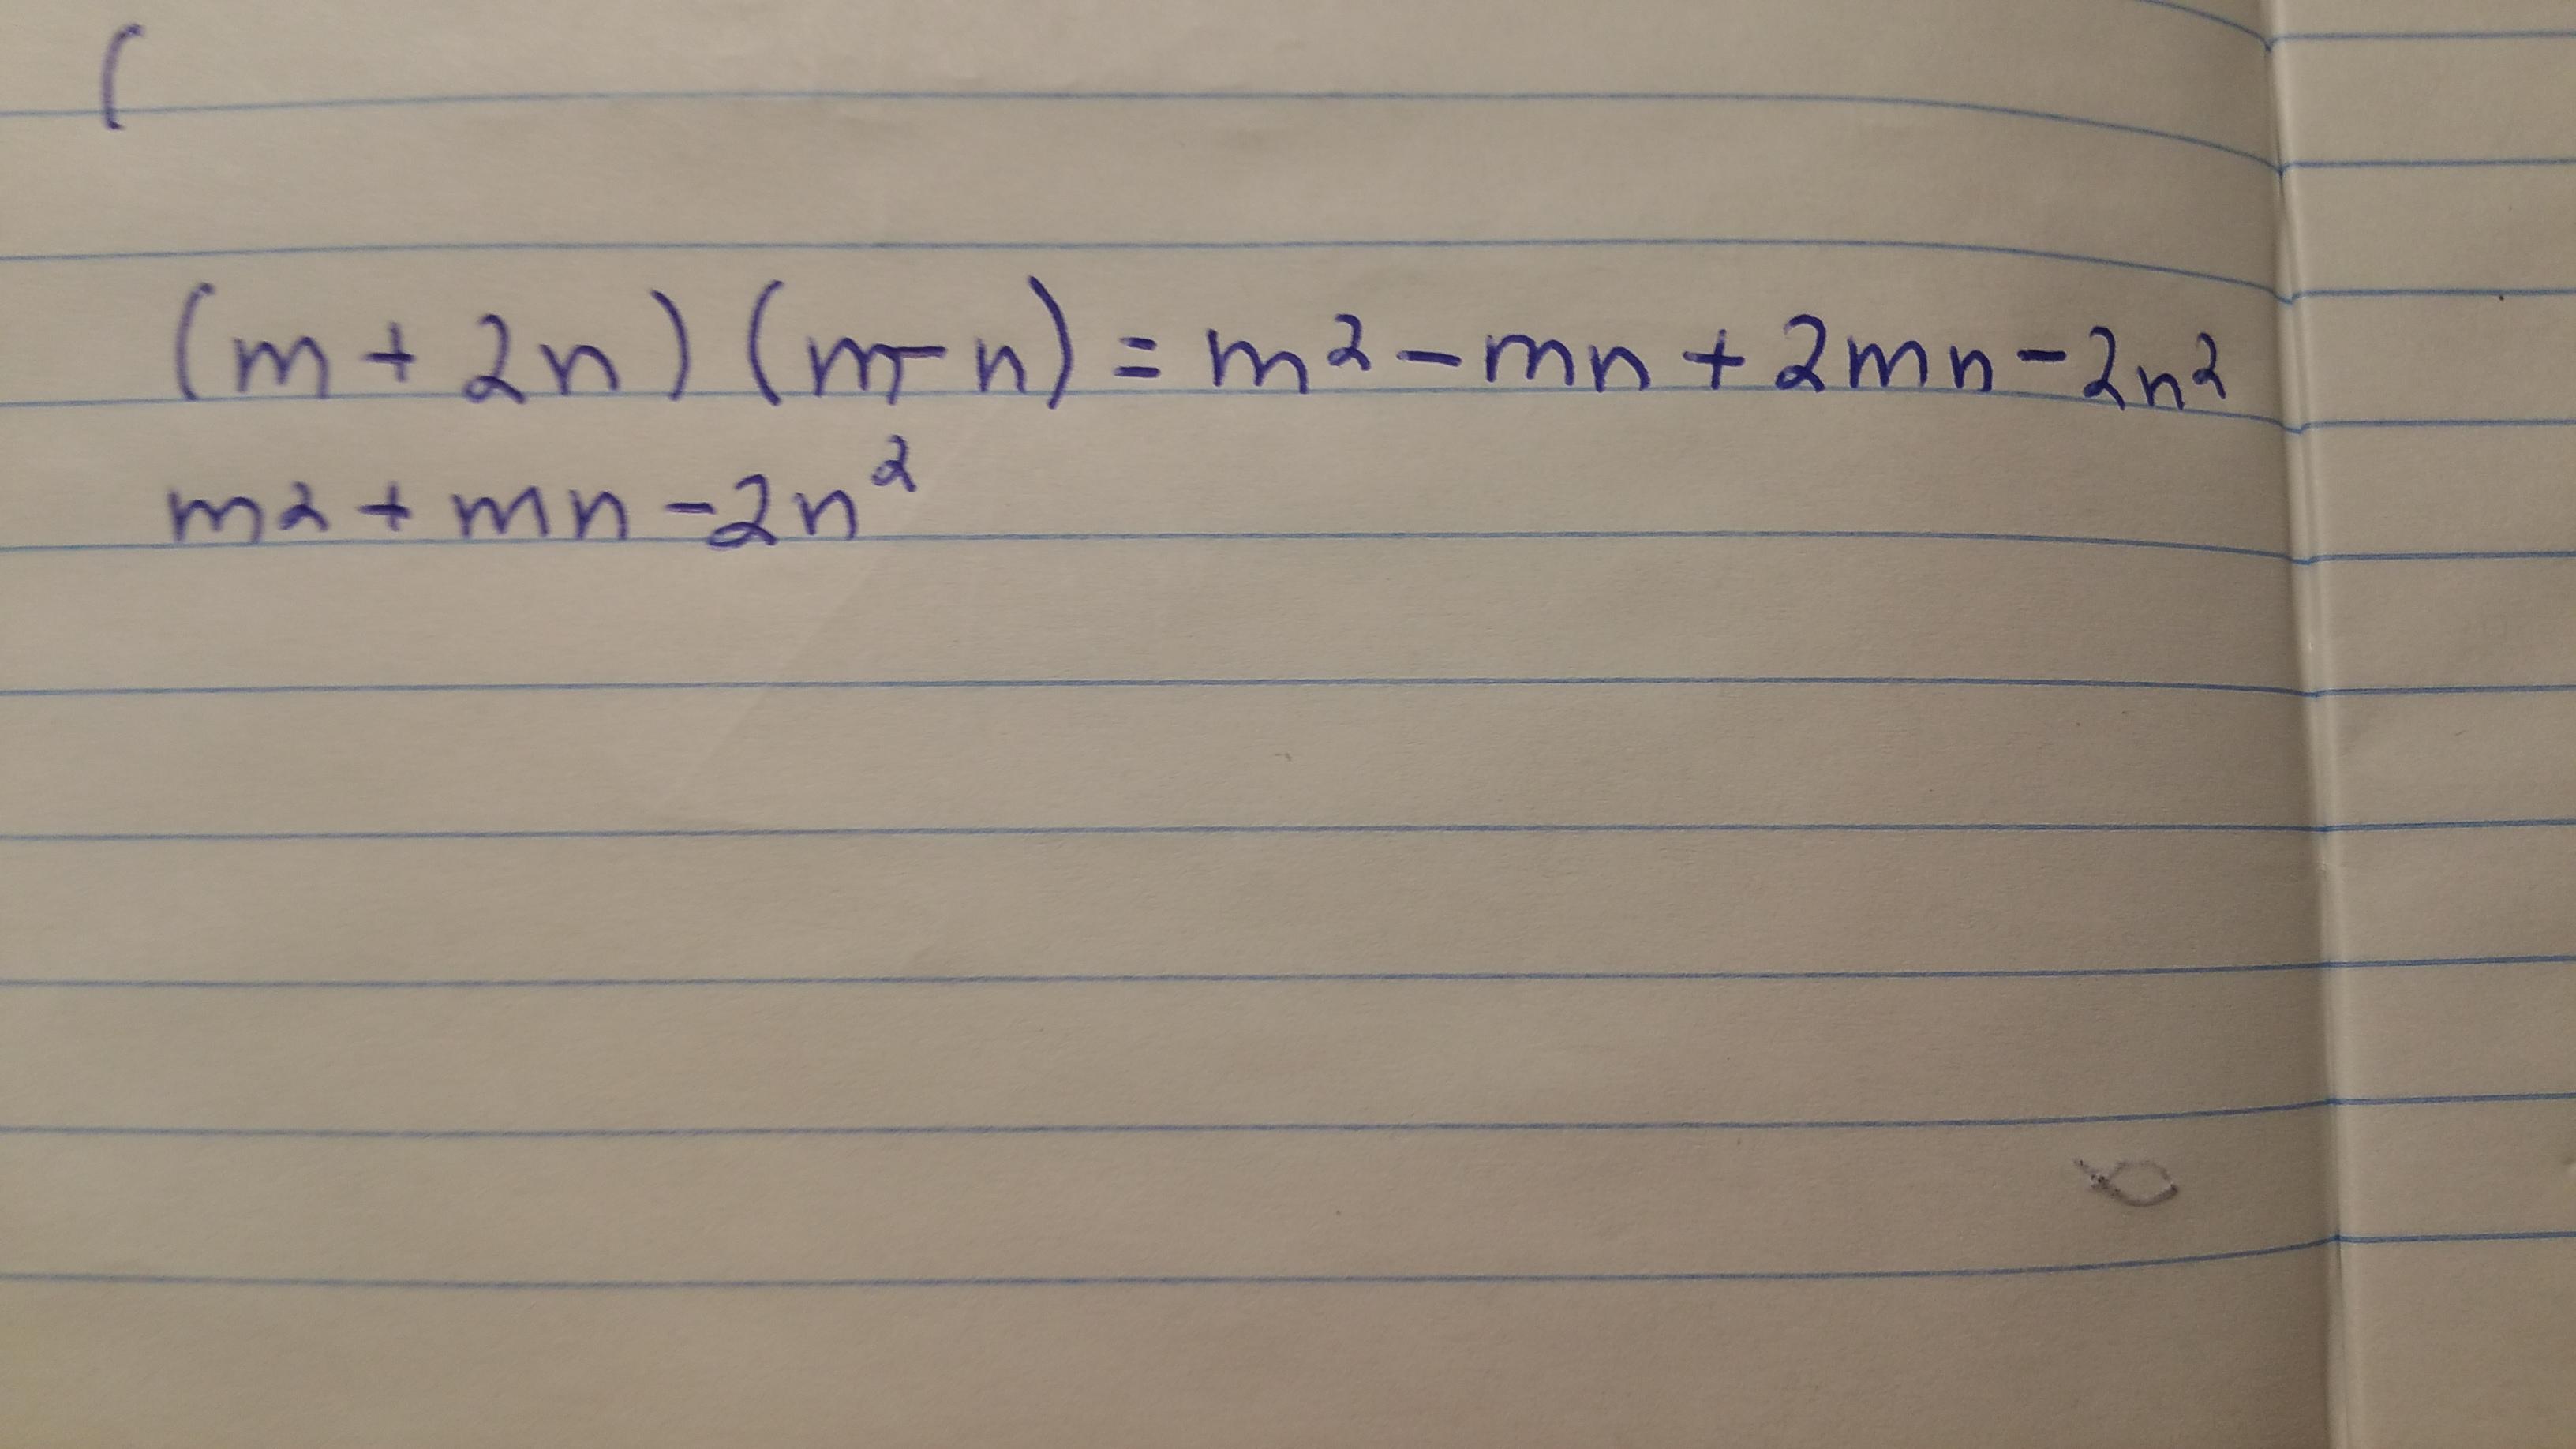 (
(m + 2n) (m - n) = m² - mn + 2mn - 2n²
m2 + mn - 2n²